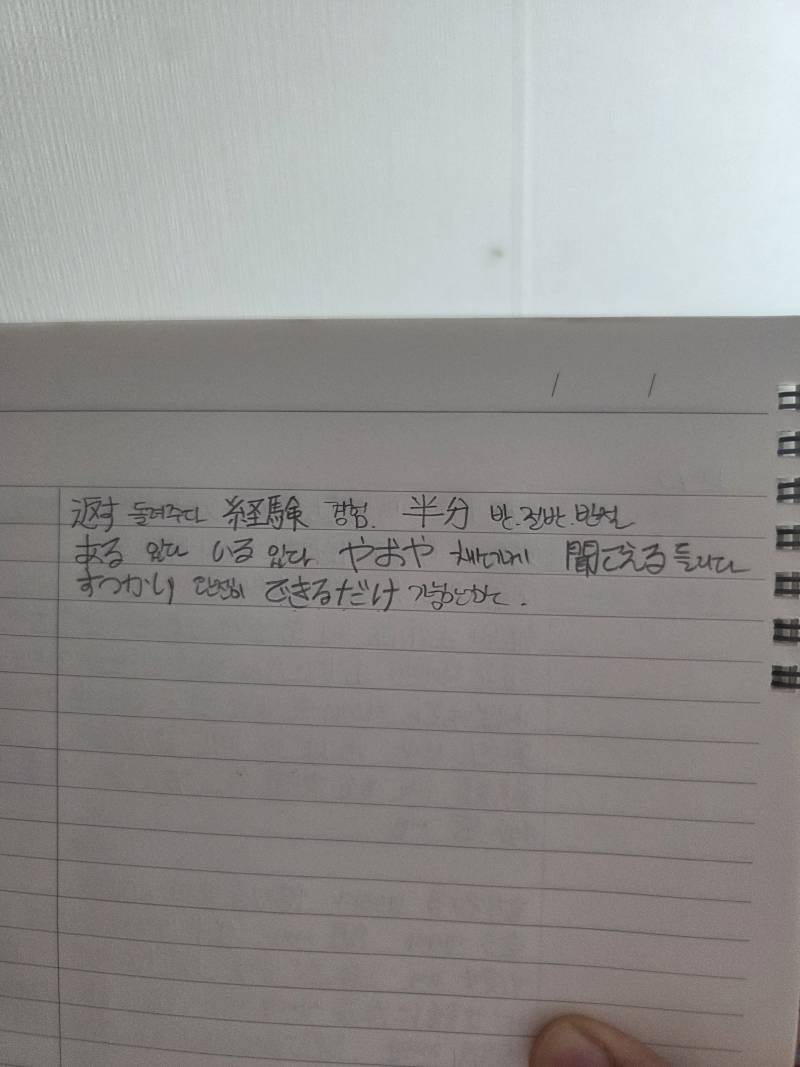 返す 돌려주다 経験 경험. 半分 반.절반.반절
ある 있다 いる 있다 やおや 채소가게 聞こえる 들리다
すっかり 완전히 できるだけ 가능한한.